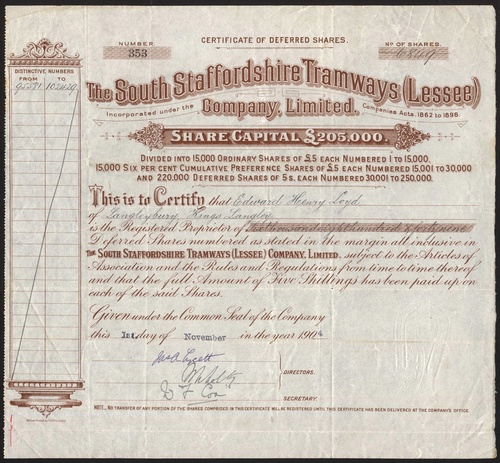 CERTIFICATE OF DEFERRED SHARES.
NUMBER
353
NO OF SHARES.
6849
DISTINCTIVE NUMBERS
FROM TO
95581 102429
The South Staffordshire Tramways (Lessee)
Incorporated under the Company, Limited. Companies Acts. 1862 to 1898.
SHARE CAPITAL £205,000.
DIVIDED INTO 15,000 ORDINARY SHARES OF £5 EACH NUMBERED 1 TO 15,000.
15,000 SIX PER CENT CUMULATIVE PREFERENCE SHARES OF £5 EACH NUMBERED 15,001 TO 30,000
AND 220,000 DEFERRED SHARES OF 5s. EACH NUMBERED 30,001 TO 250,000.
This is to Certify that Edward Henry Loyd
of Langleybury, Kings Langley
is the Registered Proprietor of Six thousand eight hundred & forty nine
Deferred Shares numbered as stated in the margin all inclusive in
THE SOUTH STAFFORDSHIRE TRAMWAYS (LESSEE) COMPANY, LIMITED. subject to the Articles of
Association and the Rules and Regulations from time to time thereof
and that the full Amount of Five Shillings has been paid up on
each of the said Shares.
Given under the Common Seal of the Company
this 1st day of November in the year 1904
DIRECTORS.
SECRETARY.
NOTE. NO TRANSFER OF ANY PORTION OF THE SHARES COMPRISED IN THIS CERTIFICATE WILL BE REGISTERED UNTIL THIS CERTIFICATE HAS BEEN DELIVERED AT THE COMPANY'S OFFICE.